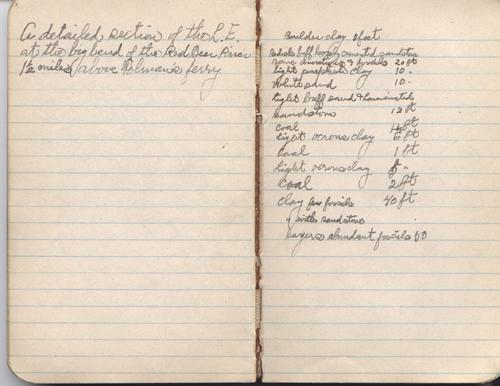 A detailed section of the L.E.
at the big bend of the Red Deer River
1½ miles above Tolman's ferry
Boulder clay 2 feet
buff loosely cemented sandstone
some & fossils 20 ft
light clay 10 "
white sand 10 "
light buff sand & laminated
sandstone 12 ft
coal ft
light clay 6 ft
Coal 1 ft
light clay
Coal 2 ft
clay few fossils 40 ft
" with sandstone
layers abundant fossils 50